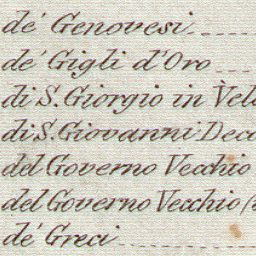 de' Genovesi
de' Gigli d'Oro
di S. Giorgio in Vel
di S. Giovanni Deco
del Governo Vecchio
del Governo Vecchio (
de' Greci